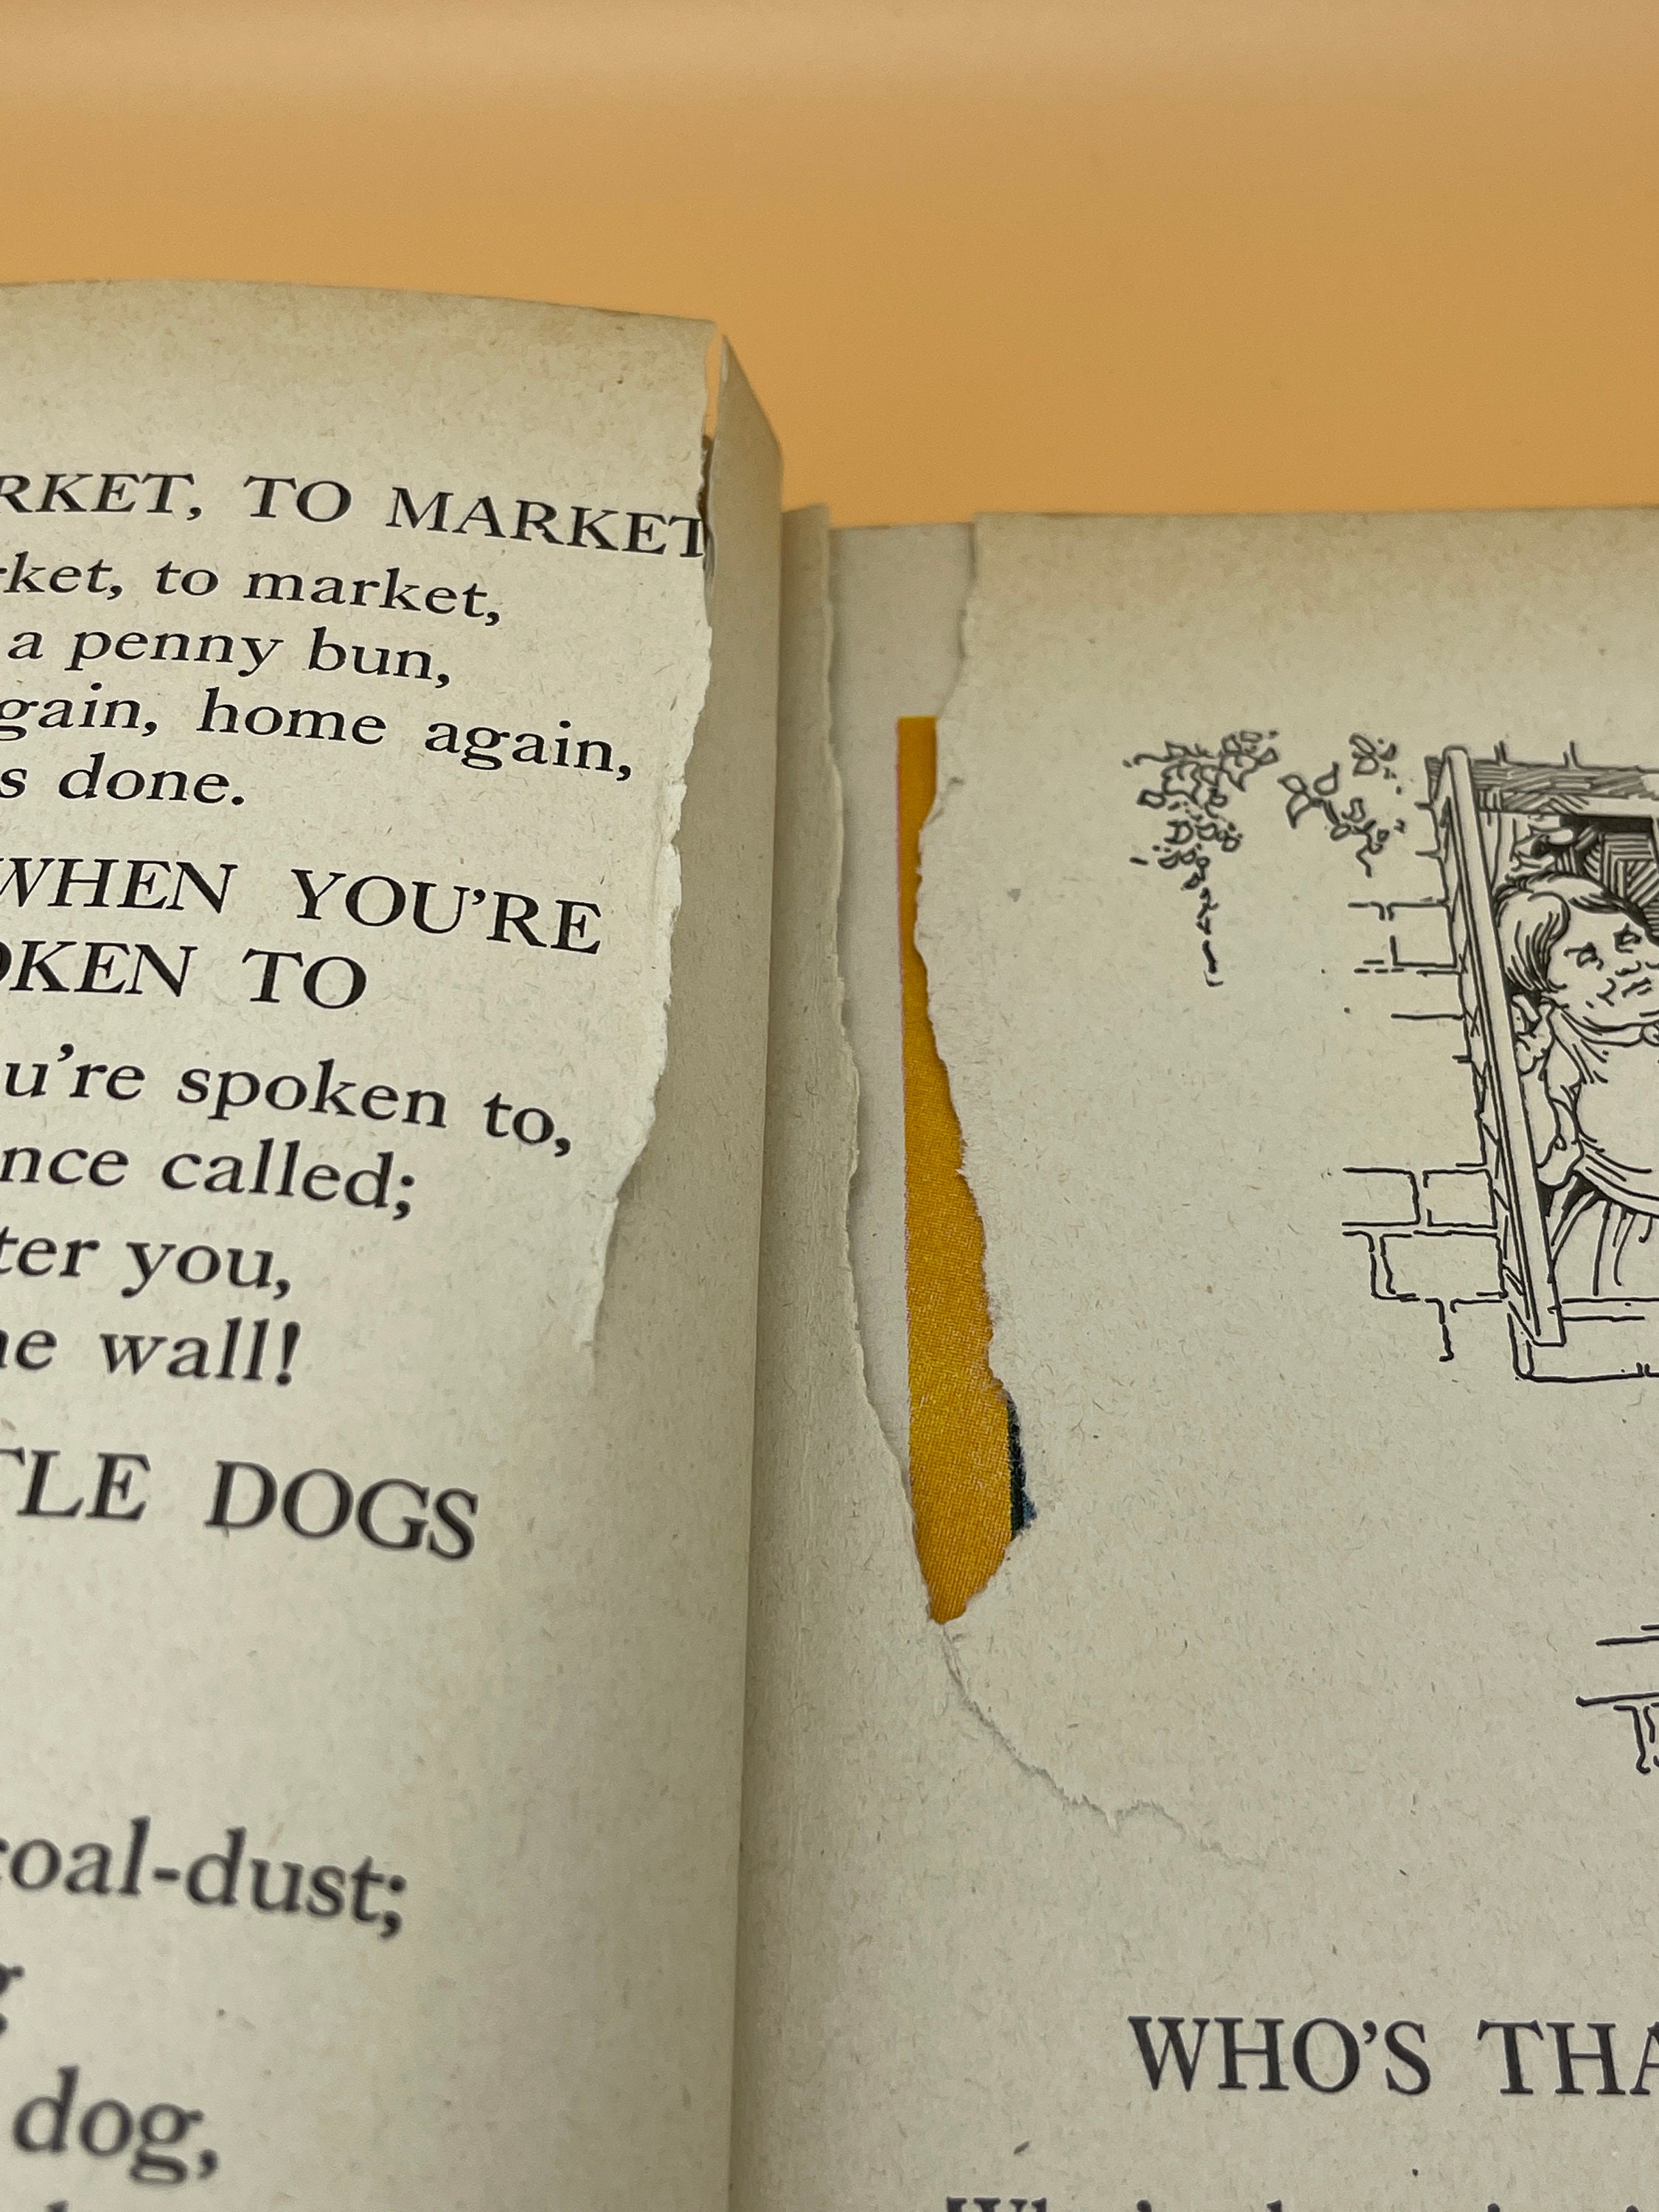 RKET, TO MARKET
rket, to market,
a penny bun,
gain, home again,
s done.
WHEN YOU'RE
OKEN TO
u're spoken to,
nce called;
ter you,
he wall!
TLE DOGS
coal-dust;
g
dog,
WHO'S THA